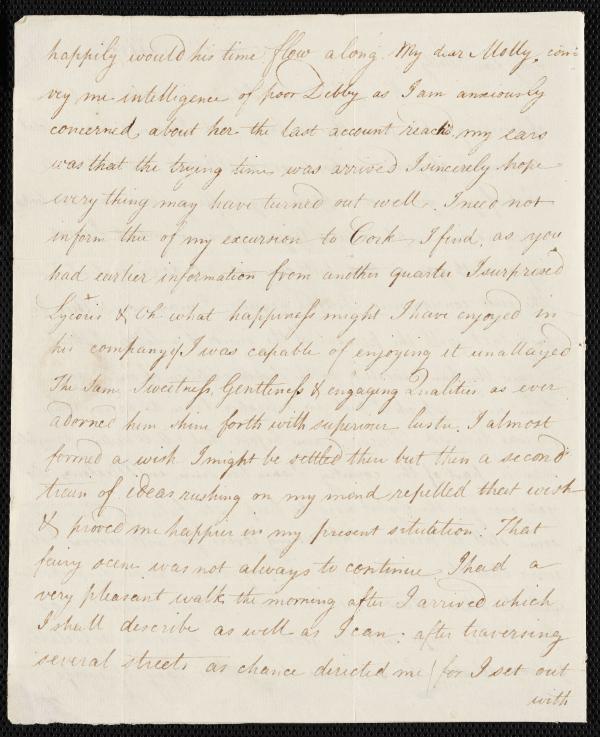 happily would his time flow along. My dear Molly, con-
vey me intelligence of poor Debby as I am anxiously
concerned about her the last account reach'd my ears
was that the trying time was arrived I sincerely hope
every thing may have turned out well. I need not
inform thee of my excursion to Cork, I find, as you
had earlier information from another quarter I surprised
Lycoris & Oh what happiness might I have enjoyed in
his company if I was capable of enjoying it unallayed
The same Sweetness, Gentleness & engaging Qualities as ever
adorned him shine forth with superiour lustre. I almost
formed a wish I might be settled there but then a second
train of ideas rushing on my mind repelled that wish
& proved me happier in my present situation: That
fairy scene was not always to continue I had a
very pleasant walk the morning after I arrived which
I shall describe as well as I can: after traversing
several streets as chance directed me (for I set out
with